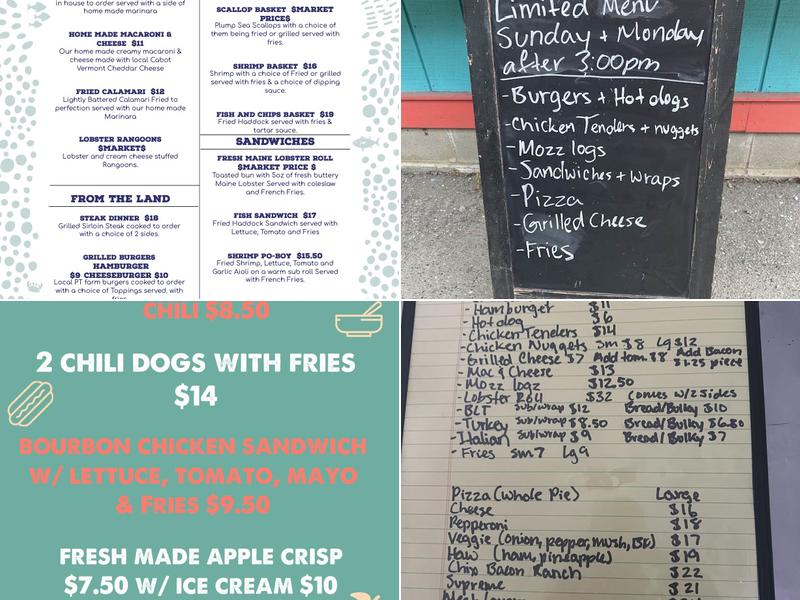 in house to order served with a side of
home made marinara
HOME MADE MACARONI &
CHEESE $11
Our home made creamy macaroni &
cheese made with local Cabot
Vermont Cheddar Cheese
FRIED CALAMARI $12
Lightly Battered Calamari Fried to
perfection served with our home made
Marinara
LOBSTER RANGOONS
$MARKET$
Lobster and cream cheese stuffed
Rangoons.
FROM THE LAND
STEAK DINNER $18
Grilled Sirloin Steak cooked to order
with a choice of 2 sides.
GRILLED BURGERS
HAMBURGER
$9 CHEESEBURGER $10
Local PT farm burgers cooked to order
with a choice of Toppings served. with
fries
SCALLOP BASKET $MARKET
PRICE$
Plump Sea Scallops with a choice of
them being fried or grilled served with
fries.
SHRIMP BASKET $16
Shrimp with a choice of Fried or grilled
served with fries & a choice of dipping
sauce.
FISH AND CHIPS BASKET $19
Fried Haddock served with fries &
tartar sauce.
SANDWICHES
FRESH MAINE LOBSTER ROLL
$MARKET PRICE $
Toasted bun with 5oz of fresh buttery
Maine Lobster Served with coleslaw
and French Fries.
FISH SANDWICH $17
Fried Haddock Sandwich served with
Lettuce, Tomato and Fries
SHRIMP PO-BOY $15.50
Fried Shrimp, Lettuce, Tomato and
Garlic Aioli on a warm sub roll Served
with French Fries.
Limited Menu
Sunday + Monday
after 3:00pm
-Burgers + Hot dogs
-Chicken Tenders + nuggets
-Mozz logs
-Sandwiches + wraps
-Pizza
-Grilled Cheese
-Fries
CHILI $8.50
2 CHILI DOGS WITH FRIES
$14
BOURBON CHICKEN SANDWICH
W/ LETTUCE, TOMATO, MAYO
& FRIES $9.50
FRESH MADE APPLE CRISP
$7.50 W/ ICE CREAM $10
- Hamburger $11
- Hot dog $6
- Chicken Tenders $14
- Chicken Nuggets Sm $8 Lg $12
- Grilled Cheese $7 Add tom. $8 Add Bacon $1.25 piece
- Mac & Cheese $13
- Mozz logz $12.50
- Lobster Roll $32 Comes w/2 sides
- BLT sub/wrap $12 Bread/Bulky $10
- Turkey sub/wrap $8.50 Bread/Bulky $6.50
- Italian sub/wrap $9 Bread/Bulky $7
- Fries sm 7 Lg 9
Pizza (Whole Pie) Large
Cheese $16
Pepperoni $18
Veggie (onion, pepper, mush, ) $17
Haw (ham, pineapple) $19
Chix Bacon Ranch $22
Supreme $21